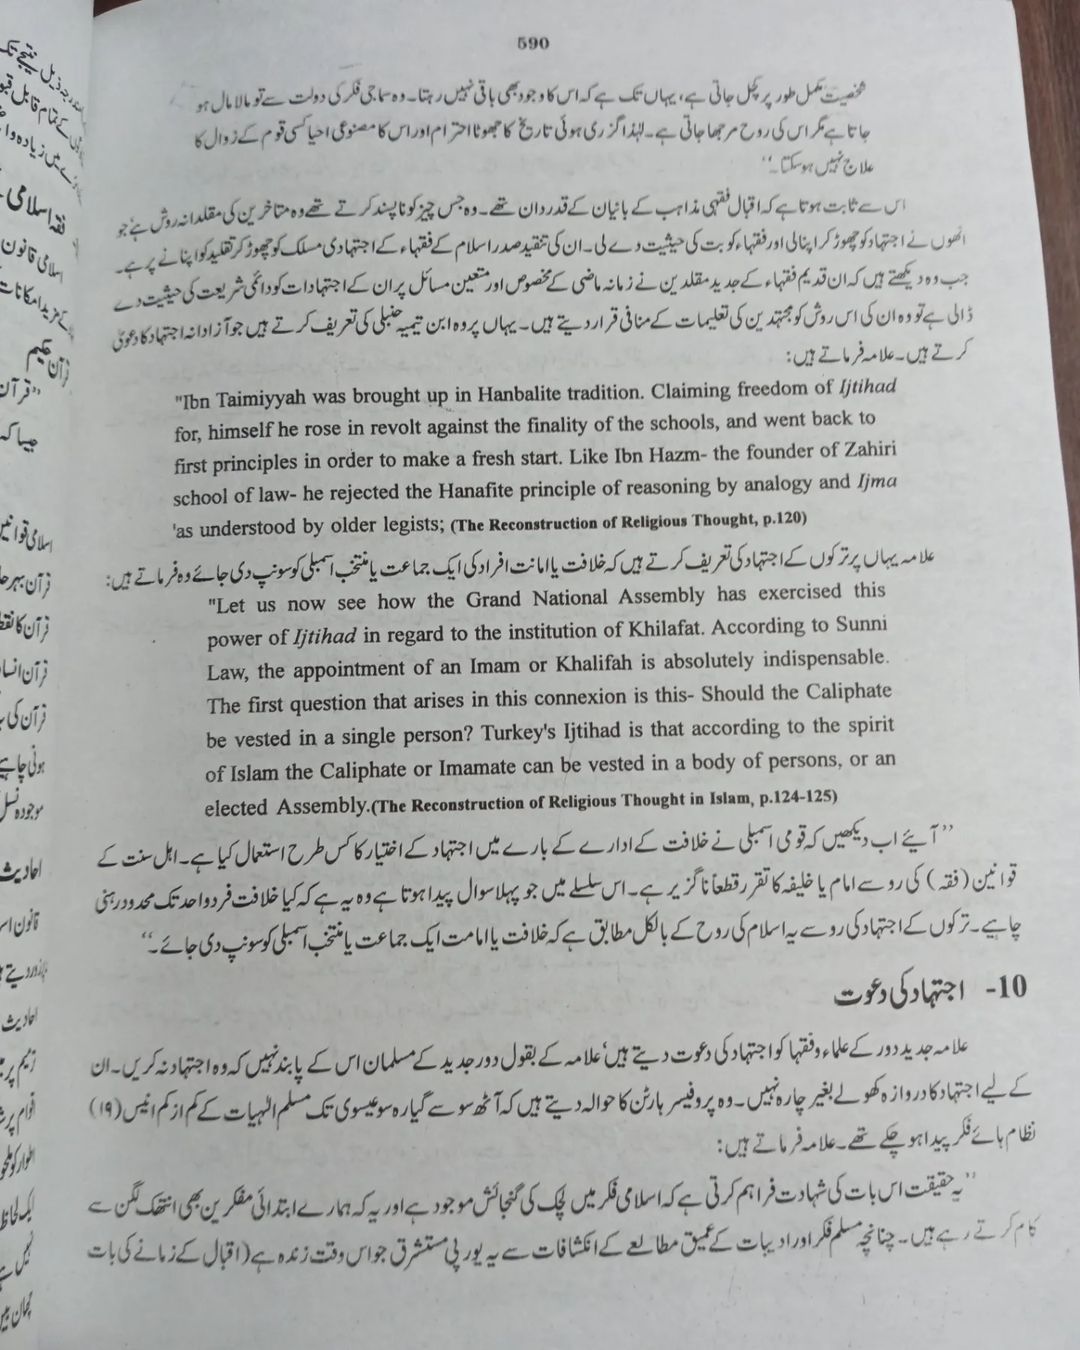 590
شخصیت مکمل طور پر کچل جاتی ہے، یہاں تک ہے کہ اس کا وجود بھی باقی نہیں رہتا۔ وہ سماجی فکر کی دولت سے تو مالا مال ہو
جاتا ہے مگر اس کی روح مرجھا جاتی ہے۔ لہٰذا گزری ہوئی تاریخ کا جھوٹا احترام اور اس کا مصنوعی احیا کسی قوم کے زوال کا
علاج نہیں ہو سکتا۔‘‘
اس سے ثابت ہوتا ہے کہ اقبال فقہی مذاہب کے بانیان کے قدردان تھے۔ وہ جس چیز کو ناپسند کرتے تھے وہ متاخرین کی مقلدانہ روش ہے، جو
انھوں نے اجتہاد کو چھوڑ کر اپنا لی اور فقہاء کو بت کی حیثیت دے لی۔ ان کی تنقید صدر اسلام کے فقہاء کے اجتہادی مسلک کو چھوڑ کر تقلید کو اپنانے پر ہے۔
جب وہ دیکھتے ہیں کہ ان قدیم فقہاء کے جدید مقلدین نے زمانہ ماضی کے مخصوص اور متعین مسائل پر ان کے اجتہادات کو دائمی شریعت کی حیثیت دے
ڈالی ہے تو وہ ان کی اس روش کو مجتہدین کی تعلیمات کے منافی قرار دیتے ہیں۔ یہاں پر وہ ابن تیمیہ حنبلی کی تعریف کرتے ہیں جو آزادانہ اجتہاد کا دعویٰ
کرتے ہیں۔ علامہ فرماتے ہیں:
"Ibn Taimiyyah was brought up in Hanbalite tradition. Claiming freedom of Ijtihad
for, himself he rose in revolt against the finality of the schools, and went back to
first principles in order to make a fresh start. Like Ibn Hazm- the founder of Zahiri
school of law- he rejected the Hanafite principle of reasoning by analogy and Ijma
'as understood by older legists; (The Reconstruction of Religious Thought, p.120)
علامہ یہاں پر ترکوں کے اجتہاد کی تعریف کرتے ہیں کہ خلافت یا امانت افراد کی ایک جماعت یا منتخب اسمبلی کو سونپ دی جائے وہ فرماتے ہیں:
"Let us now see how the Grand National Assembly has exercised this
power of Ijtihad in regard to the institution of Khilafat. According to Sunni
Law, the appointment of an Imam or Khalifah is absolutely indispensable.
The first question that arises in this connexion is this- Should the Caliphate
be vested in a single person? Turkey's Ijtihad is that according to the spirit
of Islam the Caliphate or Imamate can be vested in a body of persons, or an
elected Assembly.(The Reconstruction of Religious Thought in Islam, p.124-125)
’’آیئے اب دیکھیں کہ قومی اسمبلی نے خلافت کے ادارے کے بارے میں اجتہاد کے اختیار کا کس طرح استعمال کیا ہے۔ اہل سنت کے
قوانین (فقہ) کی رو سے امام یا خلیفہ کا تقرر قطعاً ناگزیر ہے۔ اس سلسلے میں جو پہلا سوال پیدا ہوتا ہے وہ یہ ہے کہ کیا خلافت فرد واحد تک محدود رہنی
چاہیے۔ ترکوں کے اجتہاد کی رو سے یہ اسلام کی روح کے بالکل مطابق ہے کہ خلافت یا امامت ایک جماعت یا منتخب اسمبلی کو سونپ دی جائے۔‘‘
10- اجتہاد کی دعوت
علامہ جدید دور کے علماء و فقہا کو اجتہاد کی دعوت دیتے ہیں، علامہ کے بقول دور جدید کے مسلمان اس کے پابند نہیں کہ وہ اجتہاد نہ کریں۔ ان
کے لیے اجتہاد کا دروازہ کھولے بغیر چارہ نہیں۔ وہ پروفیسر ہارٹن کا حوالہ دیتے ہیں کہ آٹھ سو سے گیارہ سو عیسوی تک مسلم الٰہیات کے کم از کم انیس (۱۹)
نظام ہائے فکر پیدا ہو چکے تھے۔ علامہ فرماتے ہیں:
’’یہ حقیقت اس بات کی شہادت فراہم کرتی ہے کہ اسلامی فکر میں لچک کی گنجائش موجود ہے اور یہ کہ ہمارے ابتدائی مفکرین بھی انتھک لگن سے
کام کرتے رہے ہیں۔ چنانچہ مسلم فکر اور ادبیات کے عمیق مطالعے کے انکشافات سے یہ یورپی مستشرق جو اس وقت زندہ ہے (اقبال کے زمانے کی بات